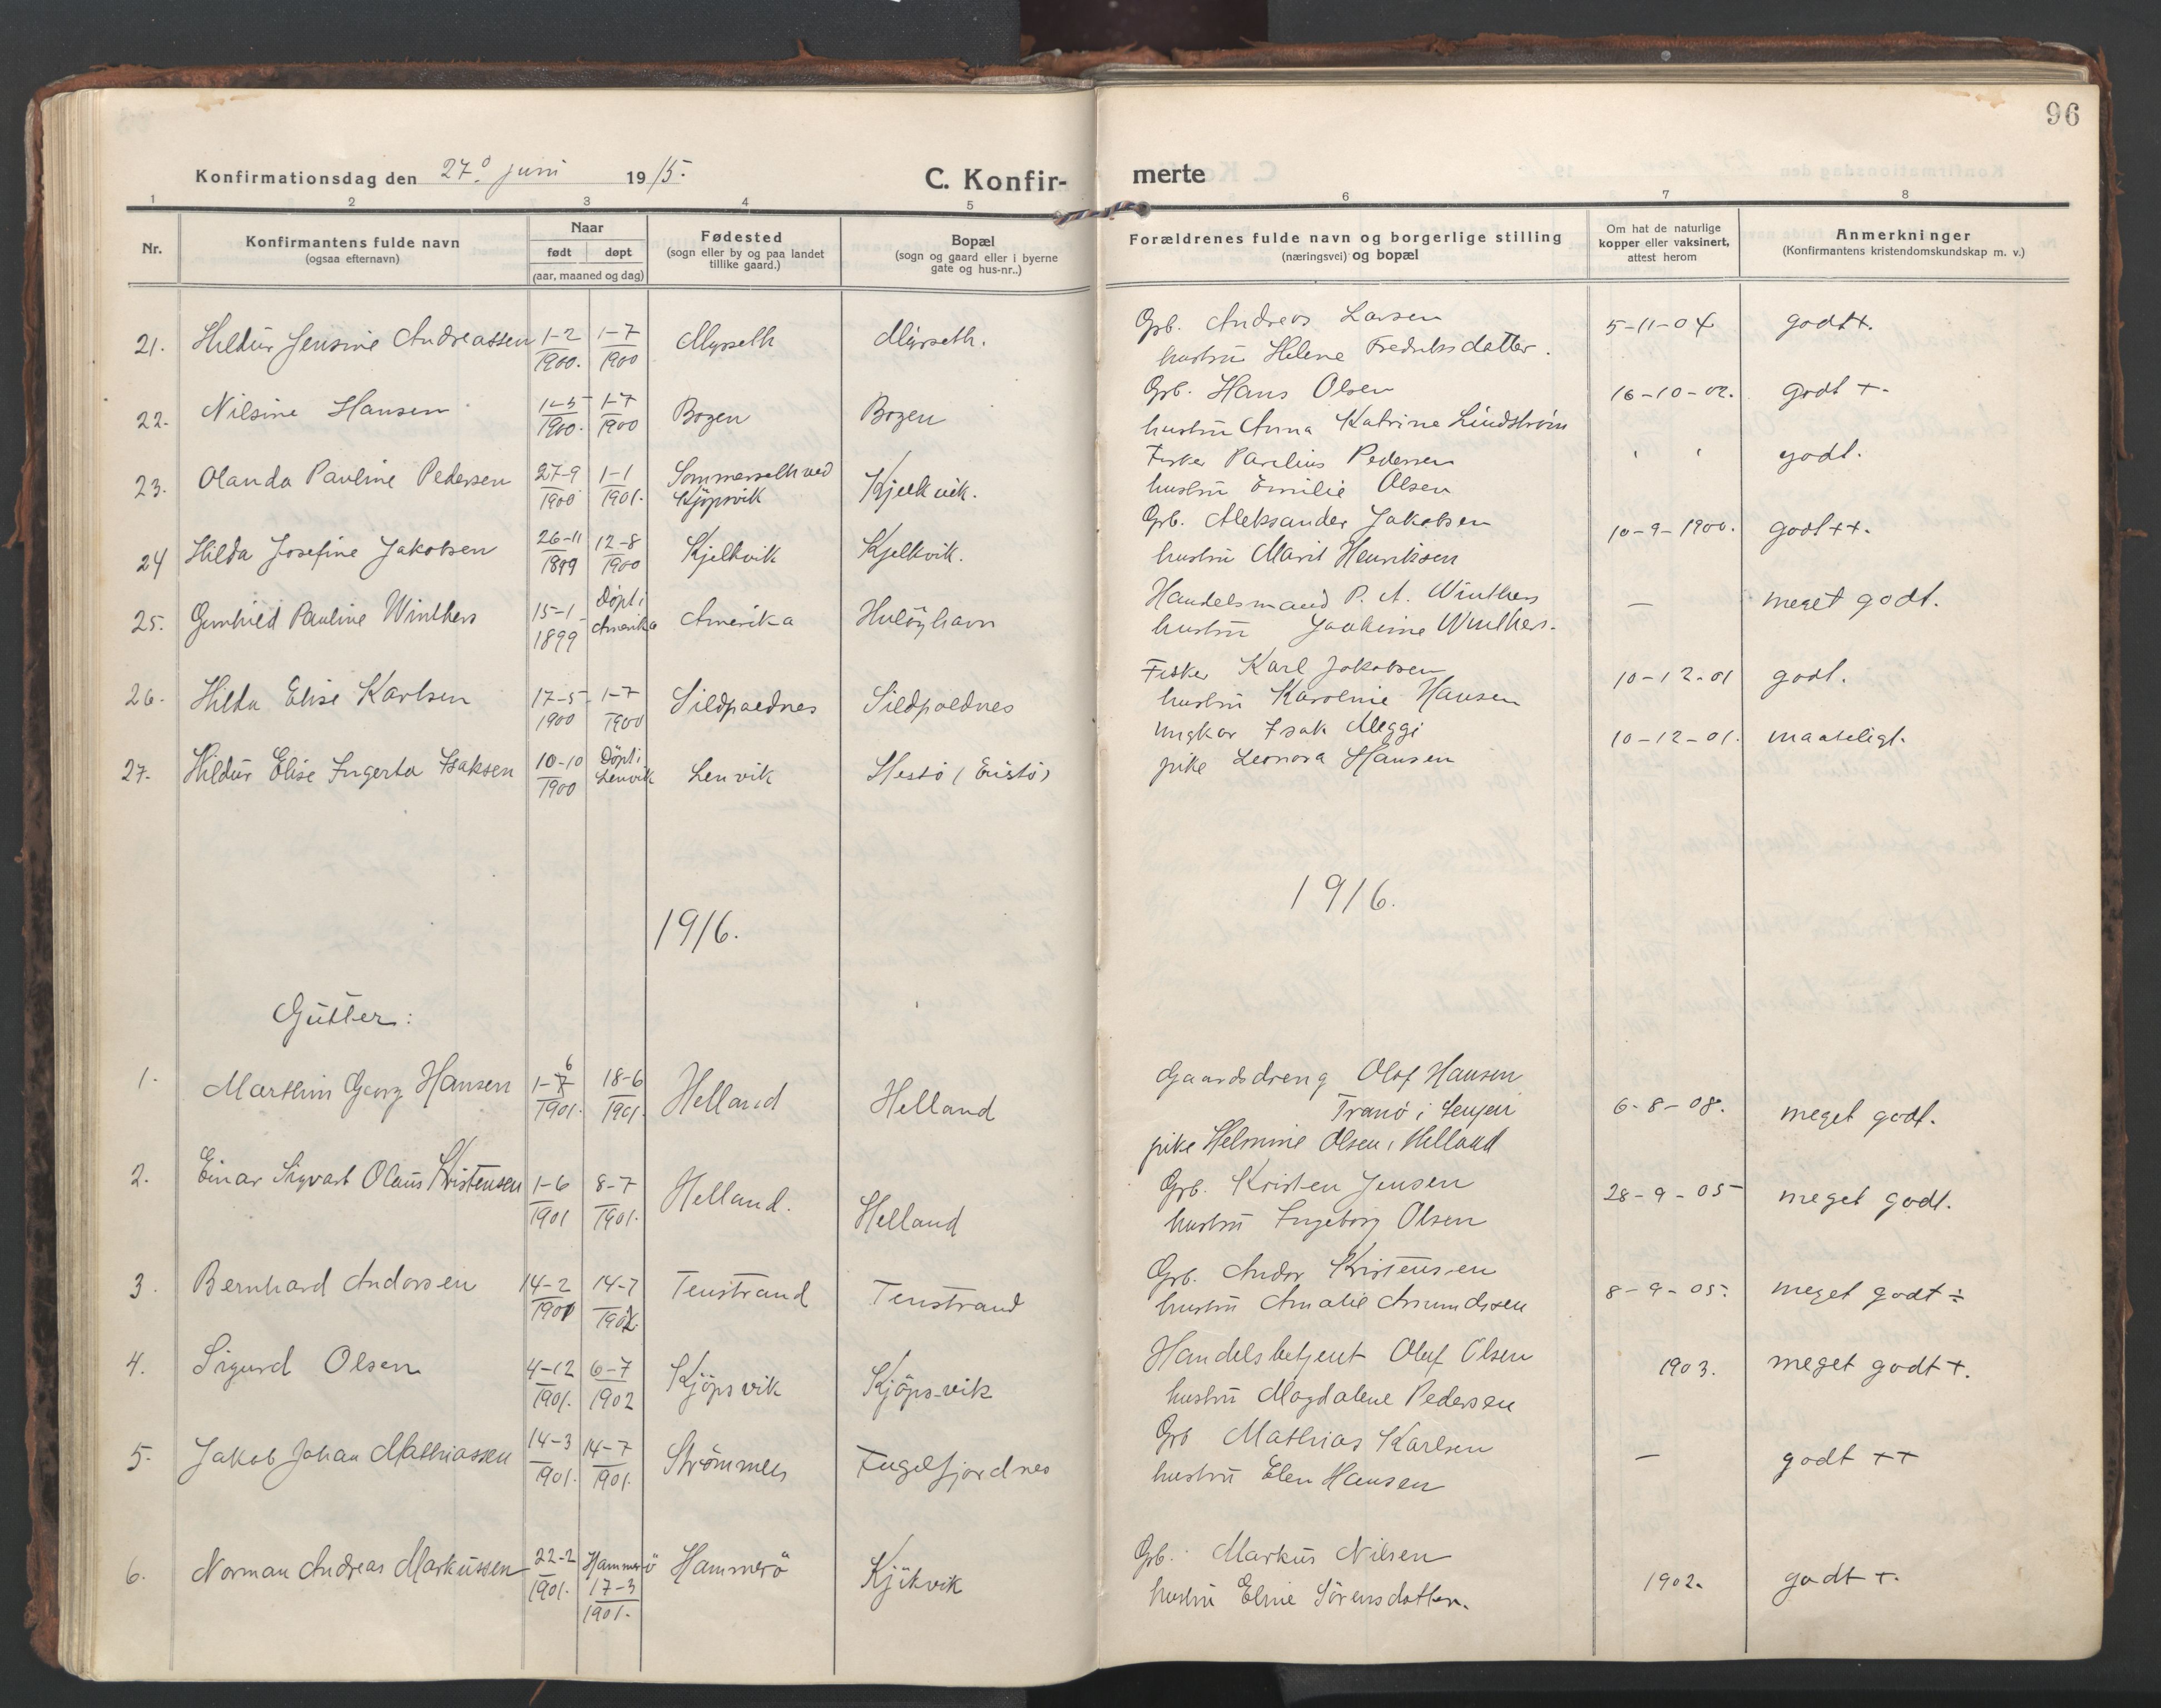 96
Konfirmationsdag den 27. juni 1915.
C. Konfir- merte
1 2 3 4 5 6 7 8
Nr.
Konfirmantens fulde navn
(ogsaa efternavn)
Naar
født døpt
(aar, maaned og dag)
Fødested
(sogn eller by og paa landet
tillike gaard.)
Bopæl
(sogn og gaard eller i byerne
gate og hus-nr..)
Forældrenes fulde navn og borgerlige stilling
(næringsvei) og bopæl
Om hat de naturlige
kopper eller vaksinert,
attest herom
Anmerkninger
(Konfirmantens kristendomskundskap m. v.)
21. Hildur Jensine Andreassen 1-2 1900. 1-7 1900 Myrseth Myrseth. Grb. Andreas Larsen 5-11-04 godt+.
hustru Helene Fredriksdatter.
22. Nilsine Hansen 1-5 1900. 1-7 1900 Bogen Bogen Grb. Hans Olsen 16-10-02. godt +.
hustru Anna Katrine Lindstrøm
23. Olanda Pauline Pedersen 27-9 1900 1-1 1901. Sommerseth ved Kjöpsvik Kjelkvik. Fisker Parelius Pedersen godt.
hustru Emilie Olsen
24 Hilda Josefine Jakobsen 26-11 1899 12-8 1900 Kjelkvik Kjelkvik. Grb. Aleksander Jakobsen 10-9-1900. godt++.
hustru Marit Henriksen
25. Gunhild Pauline Winthers 15-1 1899 Döpt i Amerika Amerika Hulöyhavn Handelsmand P. A. Winthers — meget godt.
hustru Joakime Winthers.
26. Hilda Elise Karlsen 17-5 1900 1-7 1900 Sildpoldnes Sildpoldnes Fisker Karl Jakobsen 10-12-01 godt.
hustru Karoline Hansen
27. Hildur Elise Ingerta Isaksen 10-10 1900 Döpt i Lenvik Lenvik Hestö (Eristö) ungkar Isak Meggi 10-12-01. maateligt.
pike Leonora Hansen
1916. 1916.
Gutter:
1. Marthin Georg Hansen 1-7 6 1901. 18-6 1901. Helland Helland Gaardsdreng Olof Hansen
Tranö i Senjen 6-8-08. meget godt.
pike Helmine Olsen, Helland
2. Einar Sigvart Olaus Kristensen 1-6 1901 8-7 1901. Helland. Helland Grb. Kristen Jensen 28-9-05 meget godt.
hustru Ingeborg Olsen
3. Bernhard Andorsen 14-2 1901 14-7 1901. Tenstrand Tenstrand Grb. Andor Kristensen 8-9-05. meget godt ÷
hustru Amalie Amundsen
4. Sigurd Olsen 4-12 1901. 6-7 1902 Kjöpsvik Kjöpsvik Handelsbetjent Oluf Olsen 1903. meget godt +.
hustru Magdalene Pedersen
5. Jakob Johan Mathiassen 14-3 1901. 14-7 1901. Strömmen Fuglfjordnes Grb Mathias Karlsen — godt ++
hustru Elen Hansen
6. Norman Andreas Markussen 22-2 1901. Hammerö 17-3 1901. Hammerö Kjikvik Grb. Markus Nilsen 1902. godt +.
hustru Eline Sörensdatter.